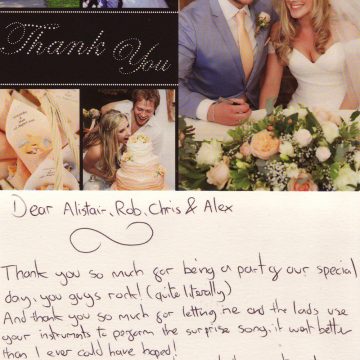 Thank
You
Dear Alistair, Rob, Chris & Alex
Thank you so much for being a part of our special
day, you guys rock! (quite literally)
And thank you so much for letting me and the lads use
your instruments to perform the surprise song, it went better
than I ever could have hoped!